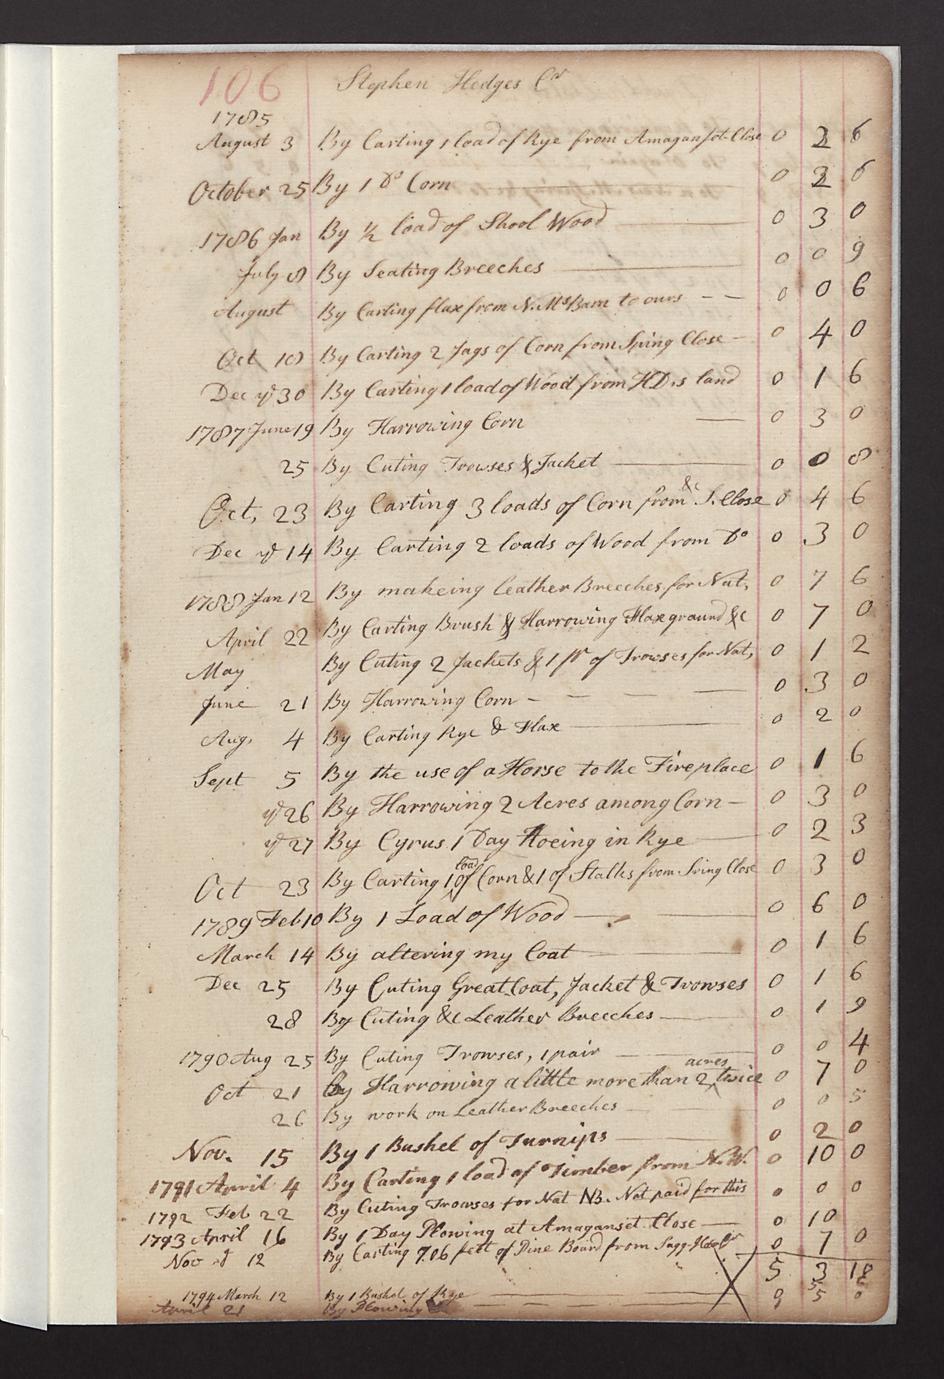 106 Stephen Hedges Cr
1785
August 3 By Carting 1 load of Rye from Amaganset-Close 0 2 6
October 25 By 1 Do Corn 0 2 6
1786 Jan By ½ load of Shool Wood 0 3 0
July 8 By Seating Breeches 0 0 9
August By Carting flax from N. Ms Barn to ours 0 0 6
Oct 10 By Carting 2 Jags of Corn from Spring Close 0 4 0
Dec ye 30 By Carting 1 load of Wood from H.D,s land 0 1 6
1787 June 19 By Harrowing Corn 0 3 0
25 By Cuting Trowses & Jacket 0 0 8
Oct, 23 By Carting 3 loads of Corn from &c S. Close 0 4 6
Dec ye 14 By Carting 2 loads of Wood from Do 0 3 0
1788 Jan 12 By makeing Leather Breeches for Nat, 0 7 6
April 22 By Carting Brush & Harrowing Flax ground &c 0 7 0
May By Cuting 2 Jackets & 1 pr of Trowses for Nat, 0 1 2
June 21 By Harrowing Corn 0 3 0
Aug, 4 By Carting Rye & Flax 0 2 0
Sept 5 By the use of a Horse to the Fireplace 0 1 6
ye 26 By Harrowing 2 Acres among Corn 0 3 0
ye 27 By Cyrus 1 Day Hoeing in Rye 0 2 3
Oct 23 By Carting 1 load of Corn & 1 of Stalks from Spring Close 0 3 0
1789 Feb 10 By 1 Load of Wood 0 6 0
March 14 By altering my Coat 0 1 6
Dec 25 By Cuting Great Coat, Jacket & Trowses 0 1 6
28 By Cuting &c Leather Breeches 0 1 9
1790 Aug 25 By Cuting Trowses, 1 pair 0 0 4
Oct 21 By Harrowing a little more than 2 acres twice 0 7 0
26 By work on Leather Breeches 0 0 5
Nov. 15 By 1 Bushel of Turnips 0 2 0
1791 April 4 By Carting 1 load of Timber from N.W. 0 10 0
1792 Feb 22 By Cuting Trowses for Nat NB. Not paid for this 0 0 0
1793 April 16 By 1 Day Plowing at Amaganset Close 0 10
Nov ye 12 By Carting 706 feet of Pine Board from Sagg-Harbr 0 7 0
5 3 18
1794 March 12 By 1 Bushel of Rye
April 21 By Plowing